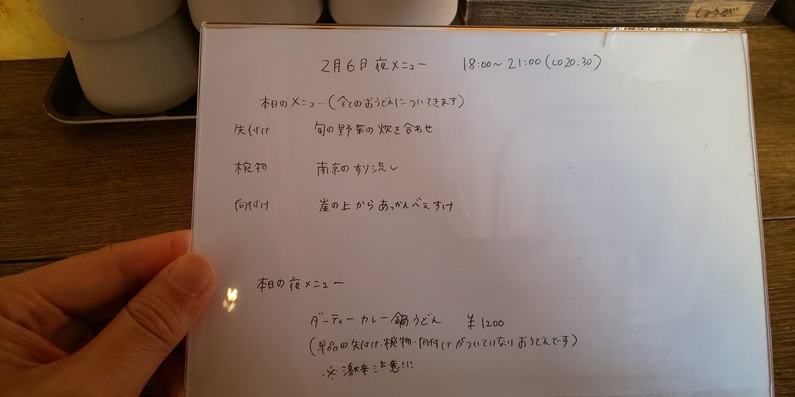 しょうが
2月6日 夜メニュー 18:00〜21:00(LO20:30)
本日のメニュー(全てのおうどんについてきます)
先付け 旬の野菜の炊き合わせ
椀物 南京のすり流し
向付け 崖の上からあっかんべぇすけ
本日の夜メニュー
ダーティーカレー鍋うどん ¥1200
(単品の先付け・椀物・向付けがついていないおうどんです)
※激辛注意!!!